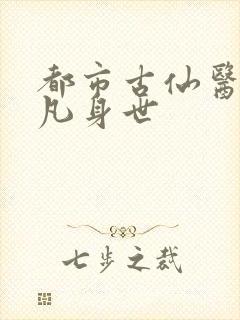 都市古仙醫
凡身世
七步之裁